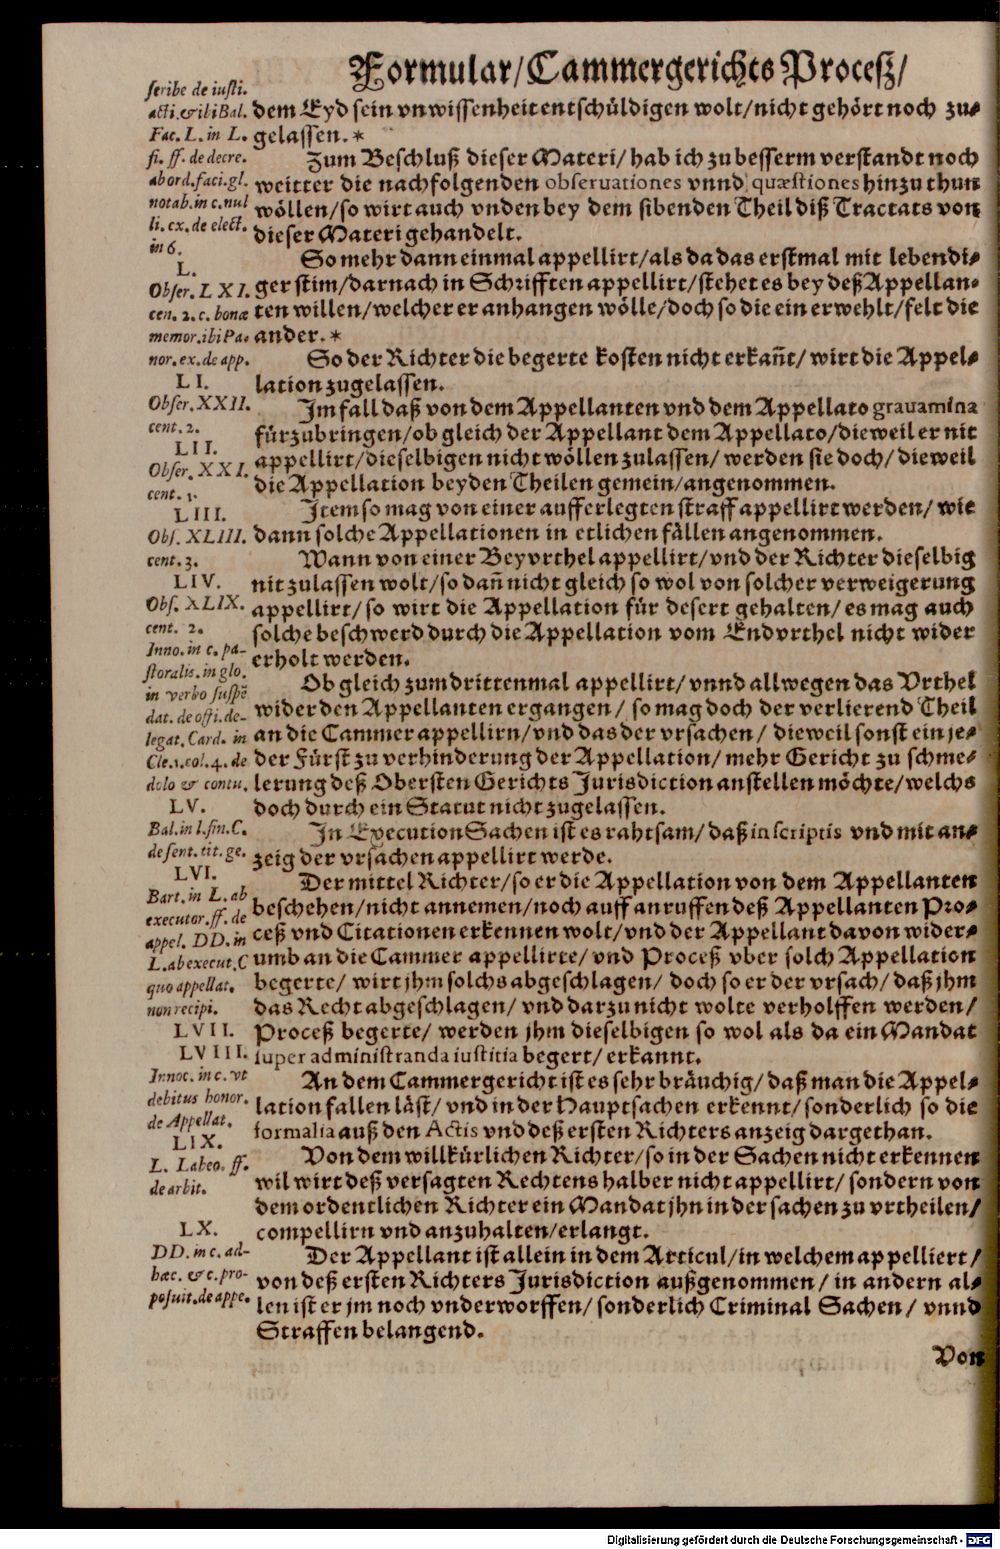 Formular/Cammergerichts Procesz/
scribe de iusti.
acti. & ibi Bal.
Fac. L. in L.
si. ff. de decre.
ab ord. faci. gl.
notab. in c. nul
li. ex. de elect.
in 6.
L.
Obser. LXI.
cen. 2. c. bonæ
memor. ibi Pa-
nor. ex. de app.
LI.
Obser. XXII.
cent. 2.
LII.
Obser. XXI.
cent. 1.
LIII.
Obs. XLIII.
cent. 3.
LIV.
Obs. XLIX.
cent. 2.
Inno. in c. pa-
storalis. in glo.
in verbo suspē
dat. de offi. de-
legat. Card. in
Cle. 1. col. 4. de
dolo & contu.
LV.
Bal. in l. fin. C.
de sent. tit. ge.
LVI.
Bart. in L. ab
executor. ff. de
appel. DD. in
L. ab execut. C
quo appellat.
non recipi.
LVII.
LVIII.
Innoc. in c. vt
debitus honor.
de Appellat.
LIX.
L. Labeo. ff.
de arbit.
LX.
DD. in c. ad-
hæc. & c. pro-
posuit. de appe.
dem Eyd sein vnwissenheit entschüldigen wolt/nicht gehört noch zu-
gelassen.*
Zum Beschluß dieser Materi/ hab ich zu besserm verstandt noch
weitter die nachfolgenden obseruationes vnnd quæstiones hinzu thun
wöllen/so wirt auch vnden bey dem sibenden Theil diß Tractats von
dieser Materi gehandelt.
So mehr dann einmal appellirt/als da das erstmal mit lebendi-
ger stim/darnach in Schrifften appellirt/stehet es bey deß Appellan-
ten willen/welcher er anhangen wölle/doch so die ein erwehlt/felt die
ander.*
So der Richter die begerte kosten nicht erkañt/ wirt die Appel-
lation zugelassen.
Im fall daß von dem Appellanten vnd dem Appellato grauamina
fürzubringen/ob gleich der Appellant dem Appellato/dieweil er nit
appellirt/dieselbigen nicht wöllen zulassen/ werden sie doch/ dieweil
die Appellation beyden Theilen gemein/angenommen.
Jtem so mag von einer aufferlegten straff appellirt werden/ wie
dann solche Appellationen in etlichen fällen angenommen.
Wann von einer Beyvrthel appellirt/vnd der Richter dieselbig
nit zulassen wolt/so dañ nicht gleich so wol von solcher verweigerung
appellirt/ so wirt die Appellation für desert gehalten/ es mag auch
solche beschwerd durch die Appellation vom Endvrthel nicht wider
erholt werden.
Ob gleich zum drittenmal appellirt/ vnnd allwegen das Vrthel
wider den Appellanten ergangen/ so mag doch der verlierend Theil
an die Cammer appellirn/vnd das der vrsachen/ dieweil sonst ein je-
der Fürst zu verhinderung der Appellation/ mehr Gericht zu schme-
lerung deß Obersten Gerichts Jurisdiction anstellen möchte/welchs
doch durch ein Statut nicht zugelassen.
Jn Execution Sachen ist es rahtsam/ daß in scriptis vnd mit an-
zeig der vrsachen appellirt werde.
Der mittel Richter/so er die Appellation von dem Appellanten
beschehen/nicht annemen/noch auff anruffen deß Appellanten Pro-
ceß vnd Citationen erkennen wolt/vnd der Appellant davon wider-
umb an die Cammer appellirte/ vnd Proceß vber solch Appellation
begerte/ wirt jhm solchs abgeschlagen/ doch so er der vrsach/ daß jhm
das Recht abgeschlagen/ vnd darzu nicht wolte verholffen werden/
Proceß begerte/ werden jhm dieselbigen so wol als da ein Mandat
super administranda iustitia begert/ erkannt.
An dem Cammergericht ist es sehr bräuchig/ daß man die Appel-
lation fallen läst/ vnd in der Hauptsachen erkennt/ sonderlich so die
formalia auß den Actis vnd deß ersten Richters anzeig dargethan.
Von dem willkürlichen Richter/so in der Sachen nicht erkennen
wil wirt deß versagten Rechtens halber nicht appellirt/ sondern von
dem ordentlichen Richter ein Mandat jhn in der sachen zu vrtheilen/
compellirn vnd anzuhalten/erlangt.
Der Appellant ist allein in dem Articul/in welchem appelliert/
von deß ersten Richters Jurisdiction außgenommen/ in andern al-
len ist er jm noch vnderworffen/ sonderlich Criminal Sachen/ vnnd
Straffen belangend.
Von
Digitalisierung gefördert durch die Deutsche Forschungsgemeinschaft - DFG